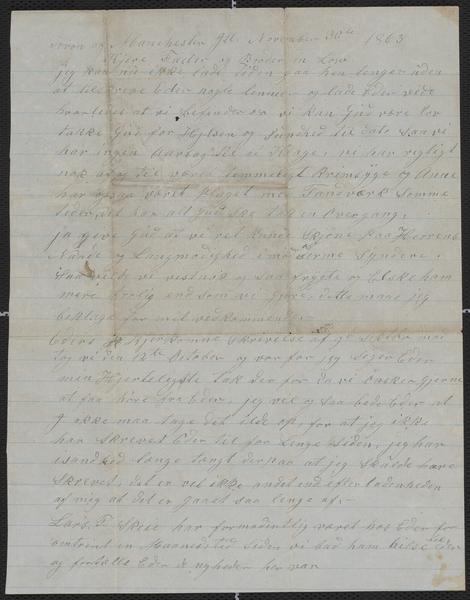 Manchester Ill. November 30te 1863
Kjære Fader og Broder in Low
jeg kan nu ikke lade tiden gaa hen lenger uden
at tilskrive Eder nogle lennier og lade Eder vede
hvorledes at vi befinder os vi kan Gud være lov
takke Gud for Helsen og Sundhed til dato saa vi
har ingen Aarsag til at Klage, vi har rigtigt
nok været og Anne
har ogsaa været Plaget med Tandværk Somme
tider, det har alt Gud ske lov en Overgang,
ja give Gud at vi ret kunde Skjøne paa Herrens
Naade og Langmodighed imod arme Syndere,
saa vilde vi vistnok og saa frygte og Elske ham
mere trolig end som vi Gjøre, dette maae jeg
beklage for mit vedkommende
Eders Hjertkomne Skrevelse af 9de
tog vi den 12te October og var for jeg Siger Eder
min Hjerteligste tak der for da vi ønsker Gjerne
at faa høre fra Eder, jeg vel og saa bede Eder at
I ikke maa tage det ilde op, for at jeg ikke
har Skrevet Eder til for Lenge Siden, jeg har
isandhed længe tængt derpaa at jeg Skulde have
Skrevet, det er vel ikke andet end efterladenheden
af mig at det er Gaaet saa lenge af.-
Lars T. Skeie har formodentlig været hos Eder for
omtrent en Maanedstid Siden vi bad ham hilse Eder
og fortælle Eder de nyheder her var